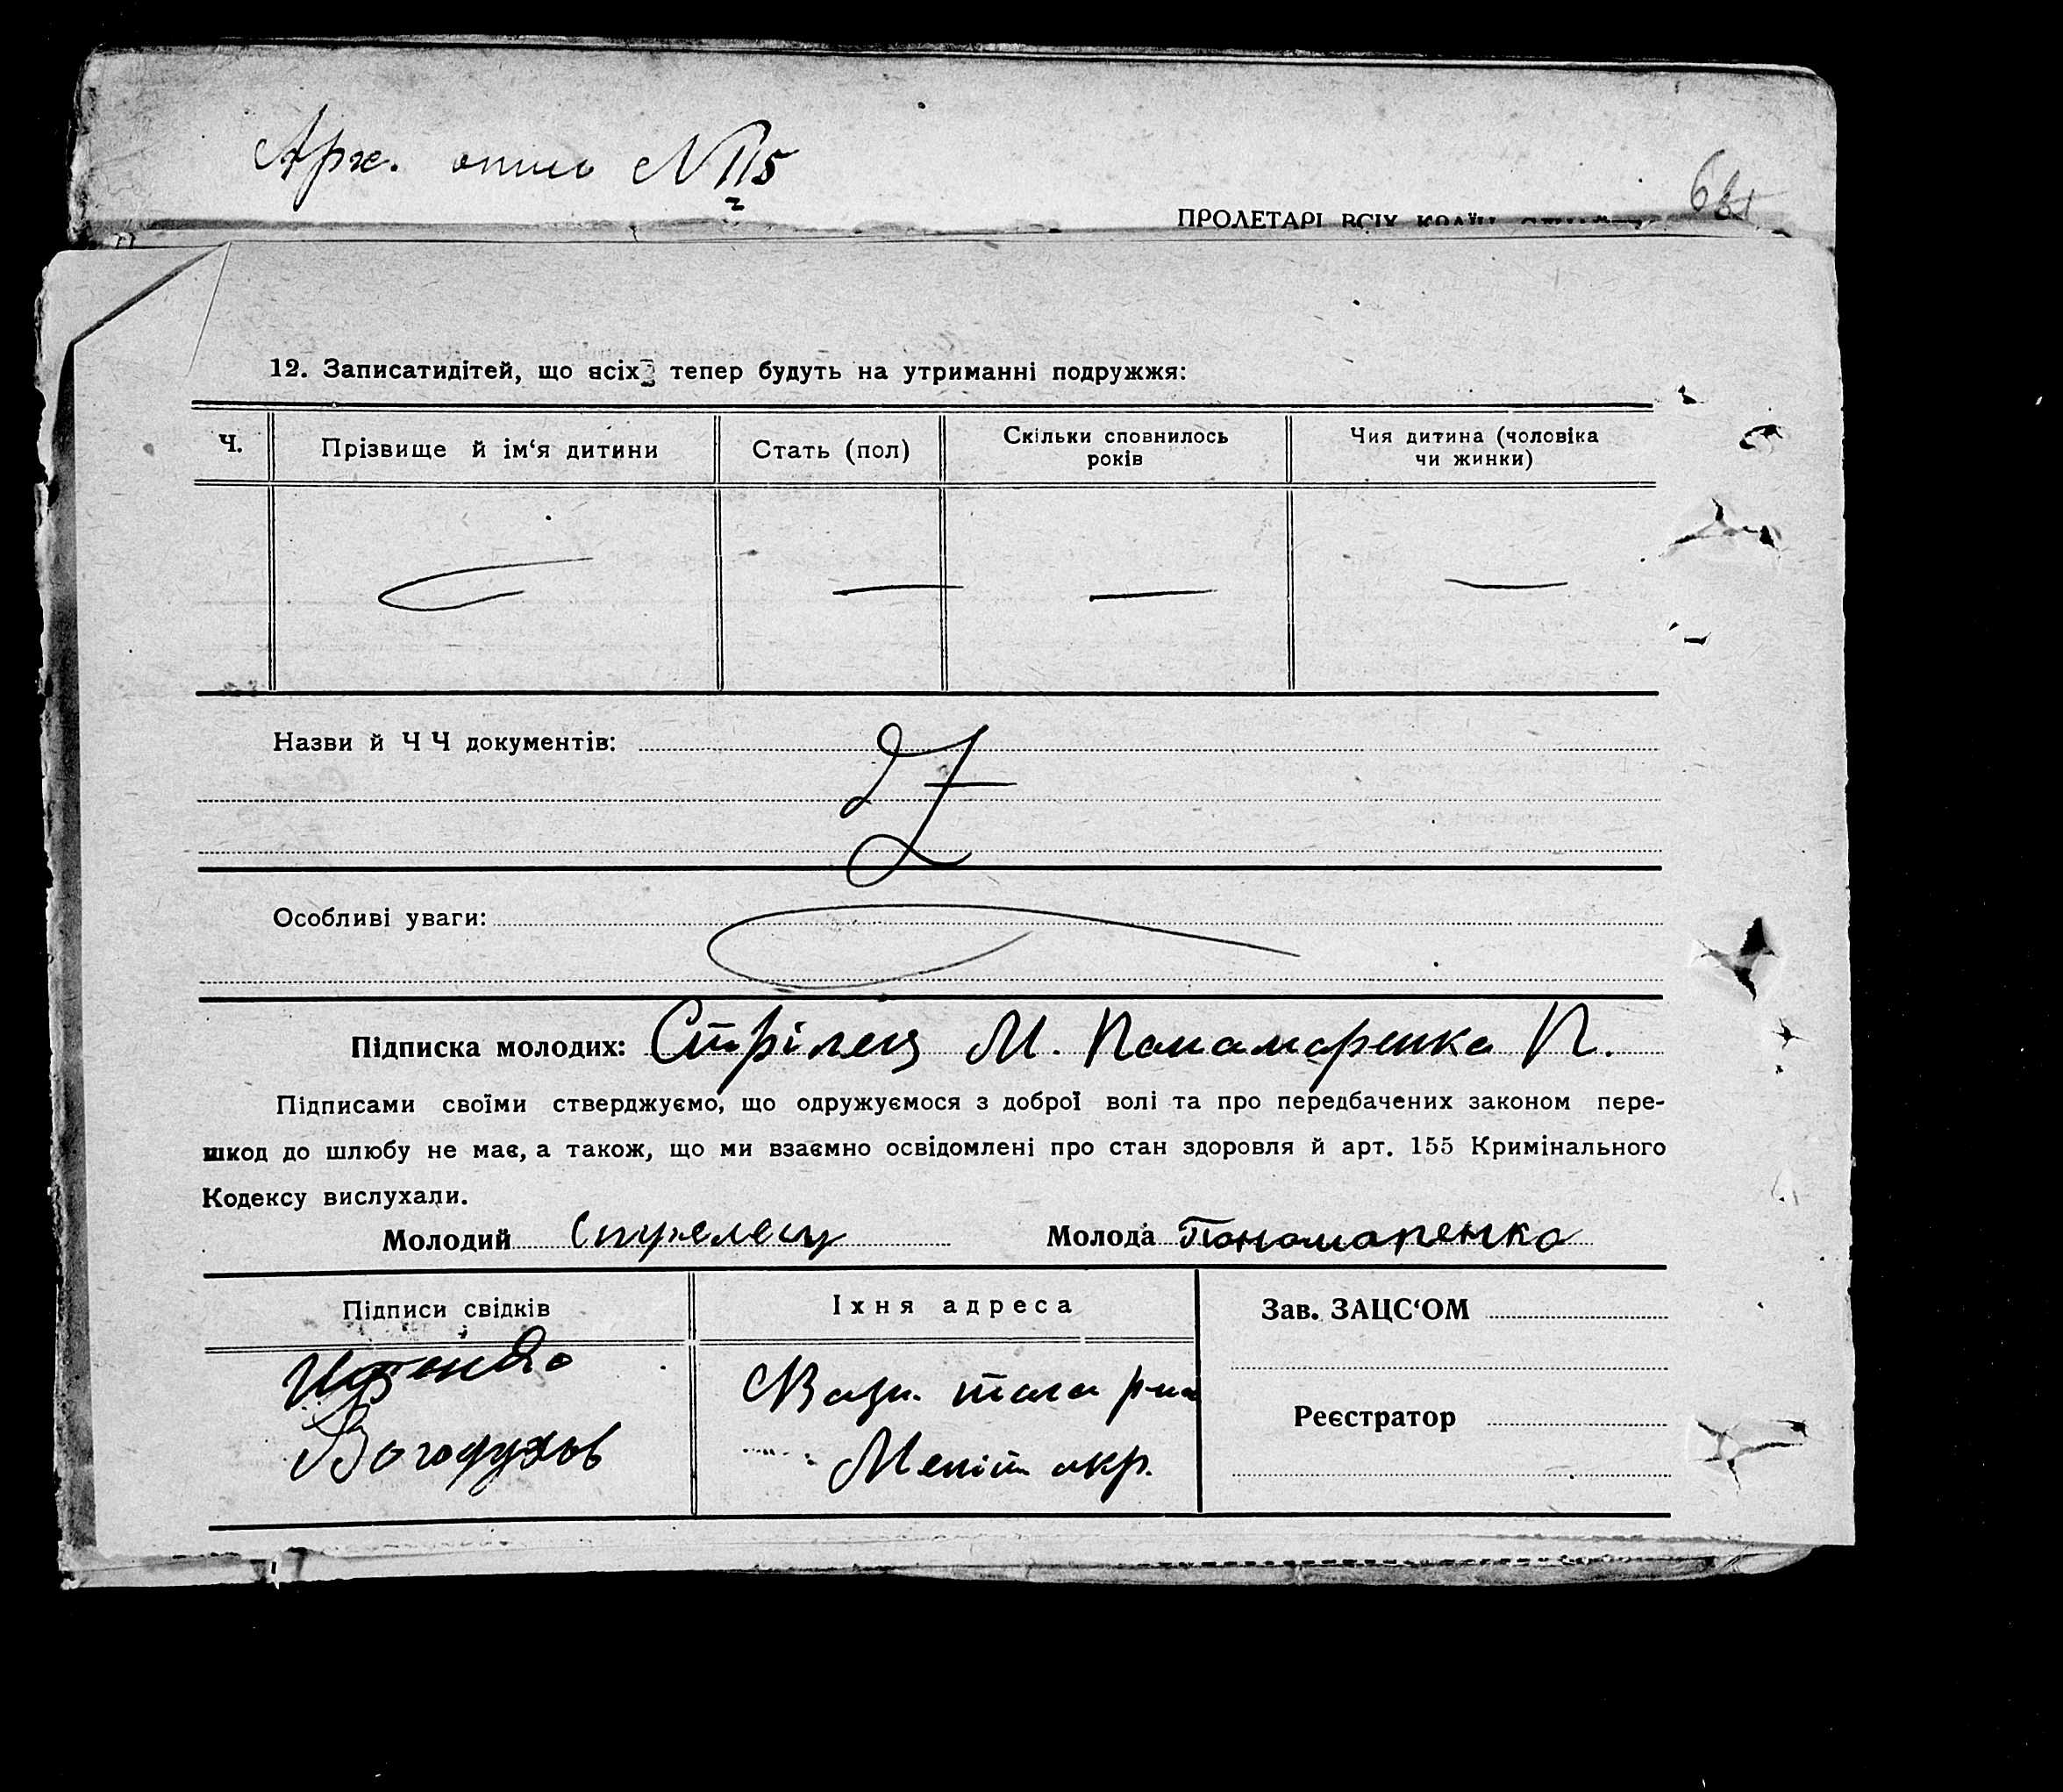 Арх. опис №115
2
ПРОЛЕТАРІ ВСІХ КРАЇН
12. Записатидітей, що всіх тепер будуть на утриманні подружжя:
Ч. Прізвище й ім‘я дитини Стать (пол) Скільки сповнилось років Чия дитина (чоловіка чи жинки)
— — —
Назви й Ч Ч документів:
Особливі уваги:
Підписка молодих: Стрілець М. Панамаренко П.
Підписами своїми стверджуємо, що одружуємося з доброї волі та про передбачених законом пере-
шкод до шлюбу не має, а також, що ми взаємно освідомлені про стан здоровля й арт. 155 Кримінального
Кодексу вислухали.
Молодий Стрелец Молода Пономаренко
Підписи свідків Їхня адреса Зав. ЗАЦС‘ОМ
р-на
Реєстратор
Богодухов Меліт. окр.